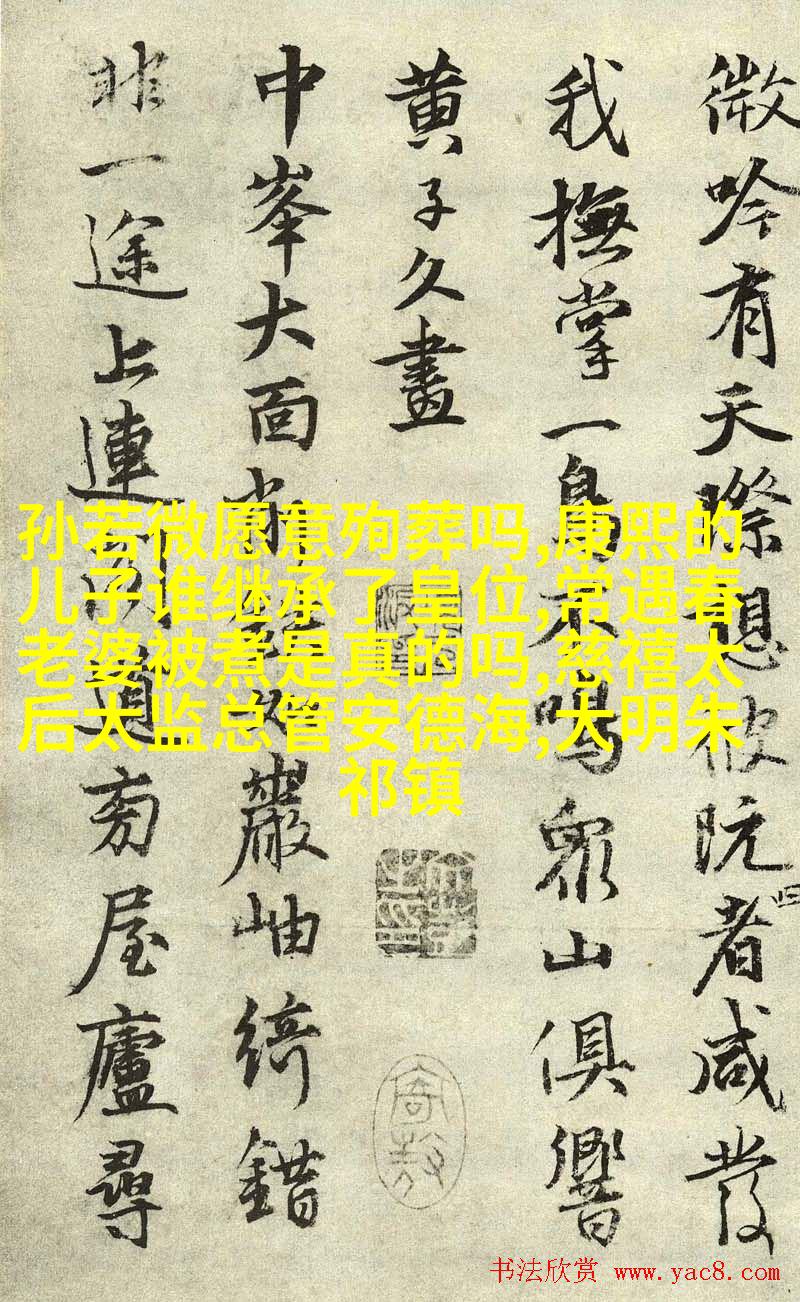 微吟有天際想彼阮者咸发
我撫掌一鳥不鳴眾山俱響
黄子久畫
中峯大面
巖岫綺錯
非一途上連
旁屋廬尋
孙若微愿意殉葬吗,康熙的
儿子谁继承了皇位,常遇春
老婆被煮是真的吗,慈禧太
后太监总管安德海,大明朱
祁镇
书法欣赏 www.yac8.com